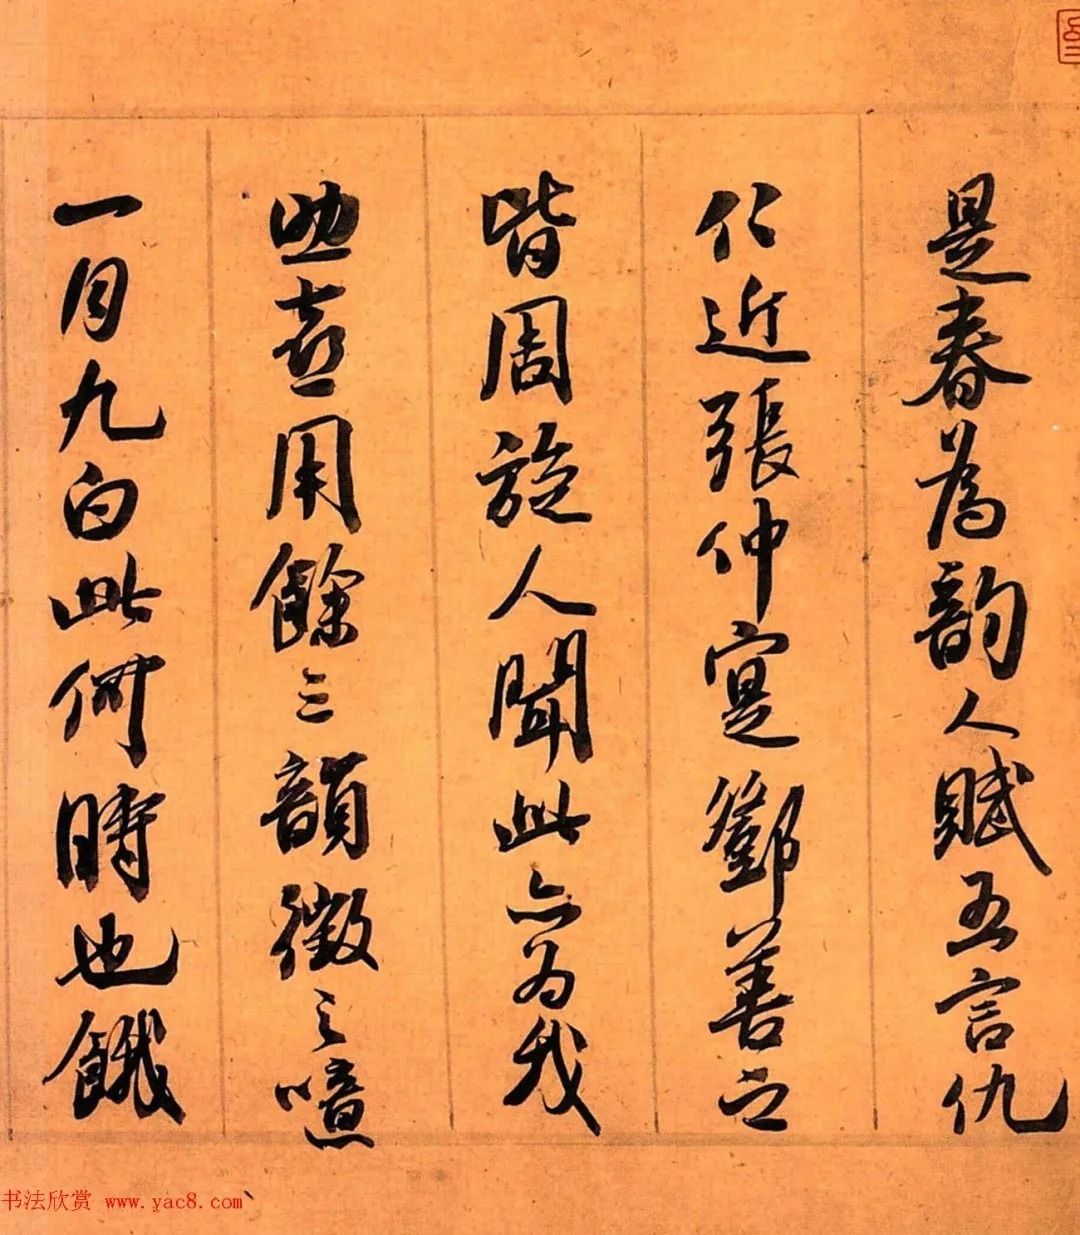 是春為韵人賦五言仇
仁近張仲寔鄧善之
皆周旋人聞此亦为我
助喜用餘三韻徵之噫
一月九白此何時也餓
书法欣赏 www.yac8.com